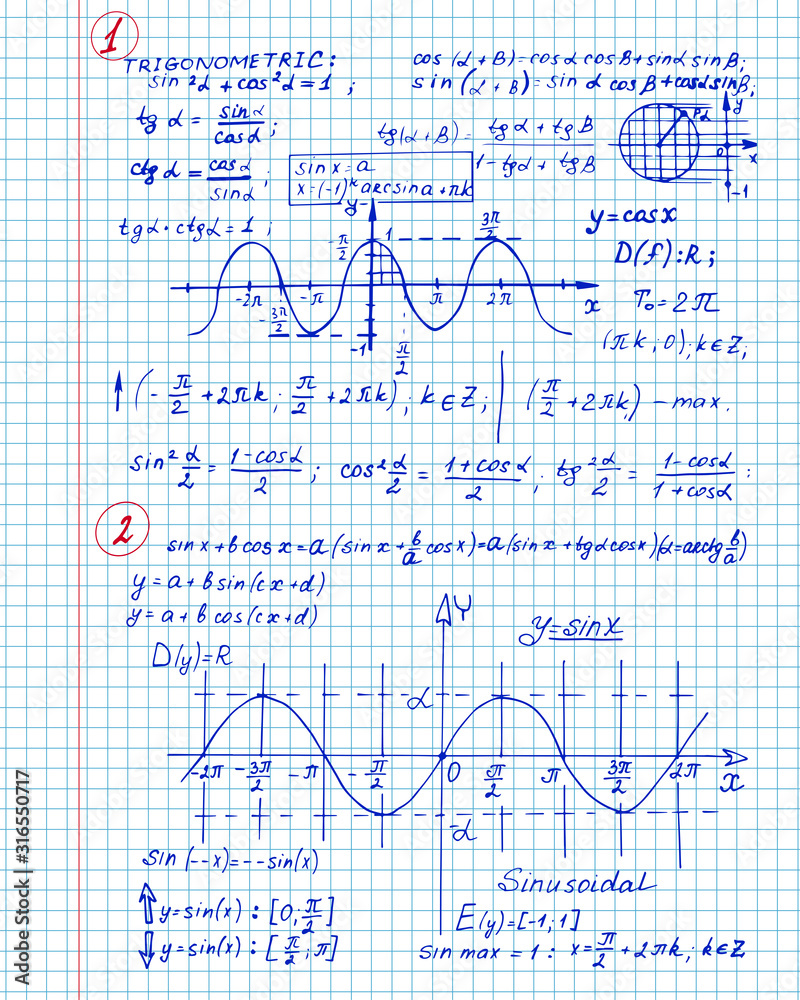 1
TRIGONOMETRIC:
sin²α + cos²α = 1 ;
cos (α + β) = cosα cosβ + sinα sinβ;
sin (α + β) = sin α cosβ + cosα sinβ;
tg α = sinα / cosα ;
tg(α + β) = tgα + tgβ / 1 - tgα + tgβ
y
Pα
0
x
-1
ctg α = cosα / sinα ;
sin x = a
x = (-1)ᵏ arcsin a + πk
tgα · ctgα = 1 ;
y = cosx
D(f): R ;
T₀ = 2π
(πk ; 0); k ∈ Z;
y
-π/2
1
3π/2
-2π
-3π/2
-π
π
2π
x
-1
π/2
↑ (-π/2 + 2πk ; π/2 + 2πk) ; k ∈ Z; | (π/2 + 2πk) - max.
sin² α/2 = 1-cosα / 2 ; cos² α/2 = 1+cosα / 2 ; tg² α/2 = 1-cosα / 1+cosα :
2
sin x + b cos x = a (sin x + b/a cos x) = a (sin x + tgα cosx) (α = arctg b/a)
y = a + b sin (cx + d)
y = a + b cos (cx + d)
D(y) = R
Y
y = sinx
α
-2π
-3π/2
-π
-π/2
0
π/2
π
3π/2
2π
X
-α
sin (--x) = --sin(x)
Sinusoidal
⇑ y = sin(x) : [0; π/2]
⇓ y = sin(x) : [π/2 ; π]
E(y) = [-1; 1]
sin max = 1 : x = π/2 + 2πk ; k ∈ Z
Adobe Stock | #316550717